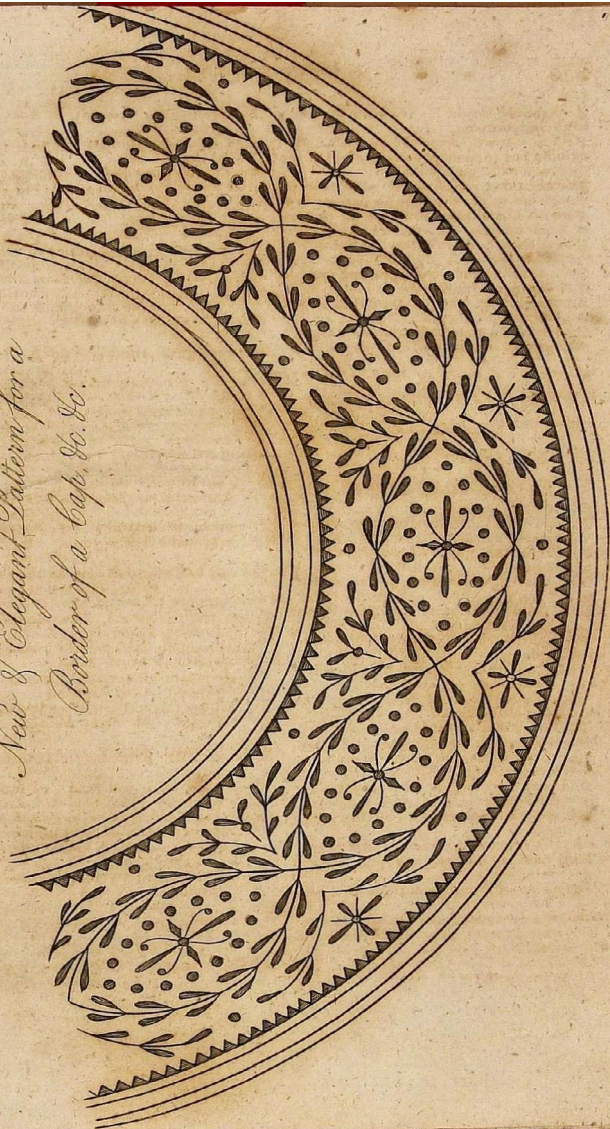 New & Elegant Pattern for a
Border of a Cap. &c. &c.